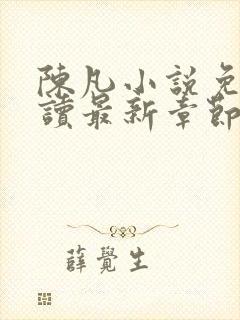 陳凡小說免
讀最新章節
薛覺生